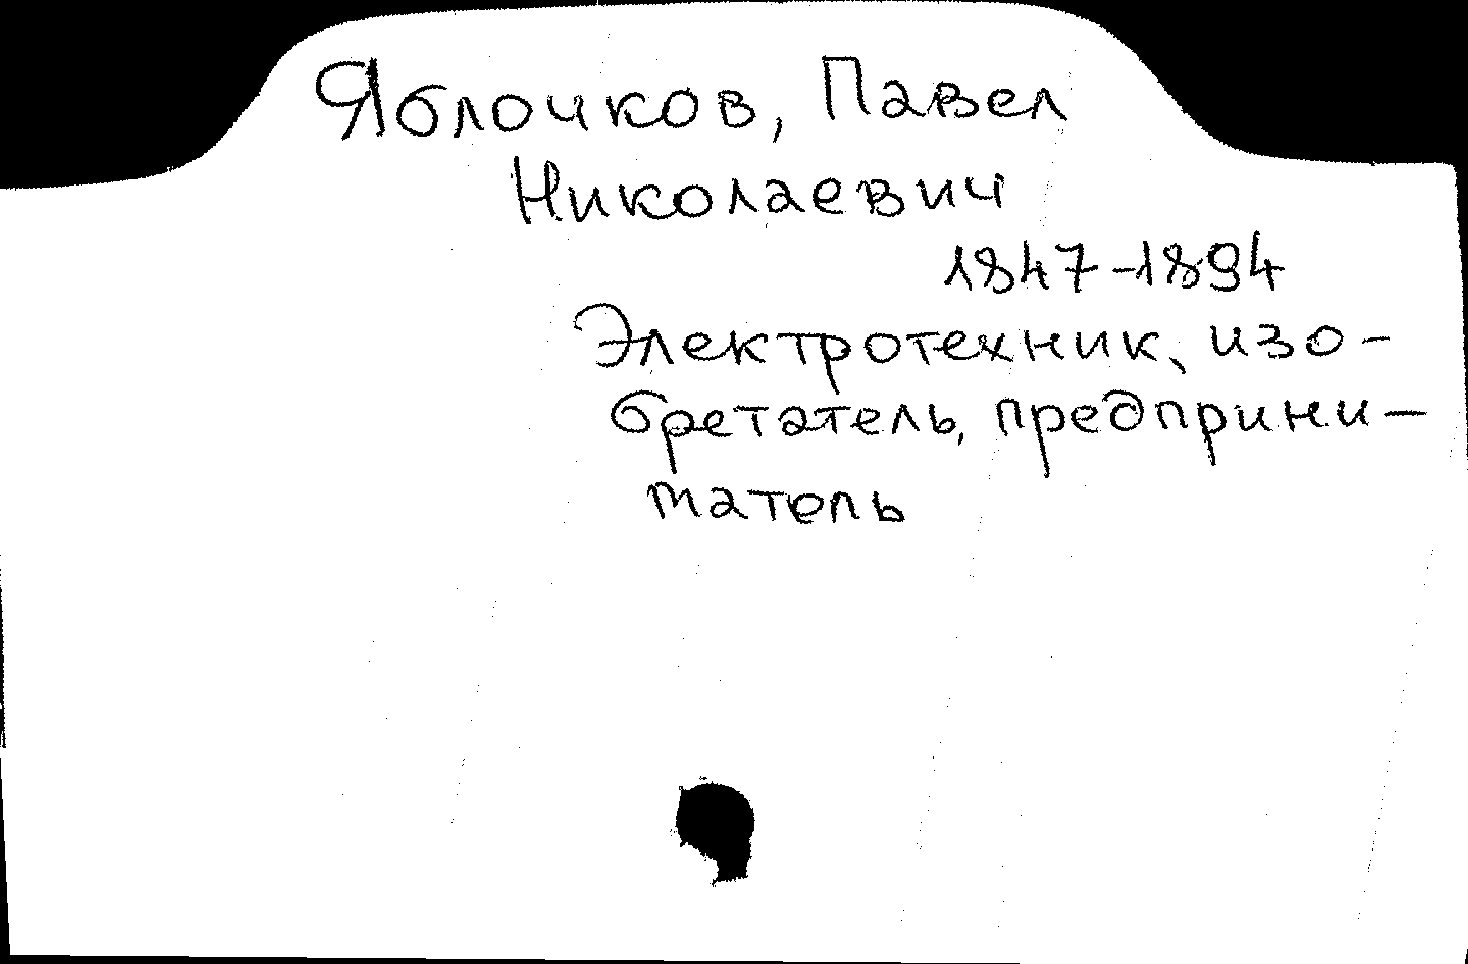 Яблочков, Павел
Николаевич
1847-1894
Электротехник, изо-
бретатель, предприни-
матель